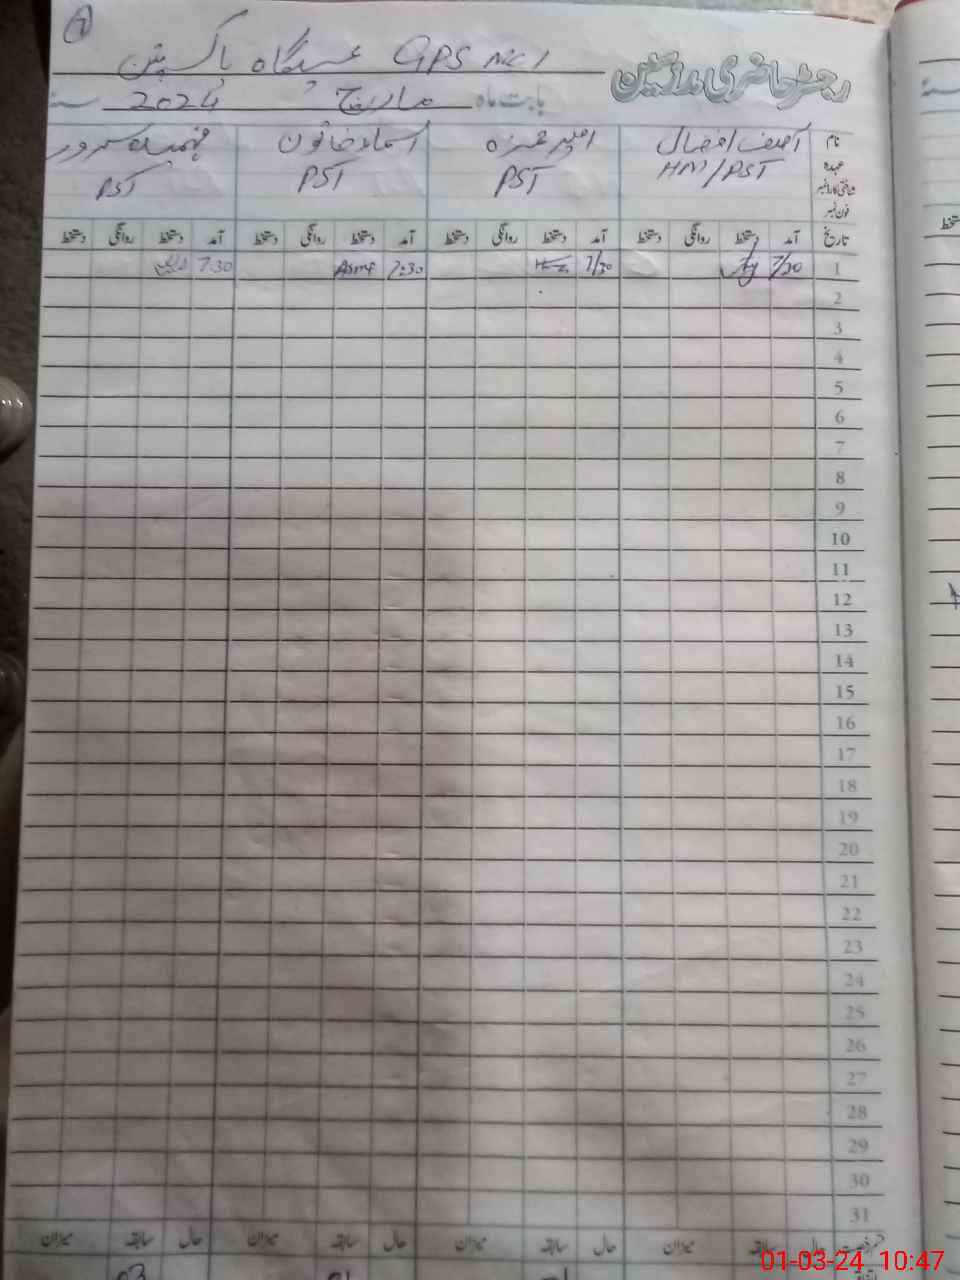 1
رجسٹر حاضری ملازمین
GPS MC 1 عیدگاہ پاکپتن
بابت ماہ مارچ 2024 سنہ
نام آصف افضال امیر حمزہ اسماء خاتون فہمیدہ سرور
عہدہ HM/PST PST PST PST
فون نمبر
تاریخ آمد دستخط روانگی دستخط آمد دستخط روانگی دستخط آمد دستخط روانگی دستخط آمد دستخط روانگی دستخط
1 7/30 7/30 7:30 Asma 7:30
2
3
4
5
6
7
8
9
10
11
12
13
14
15
16
17
18
19
20
21
22
23
24
25
26
27
28
29
30
31
حال سابقہ میزان حال سابقہ میزان حال سابقہ میزان حال سابقہ میزان
01-03-24 10:47